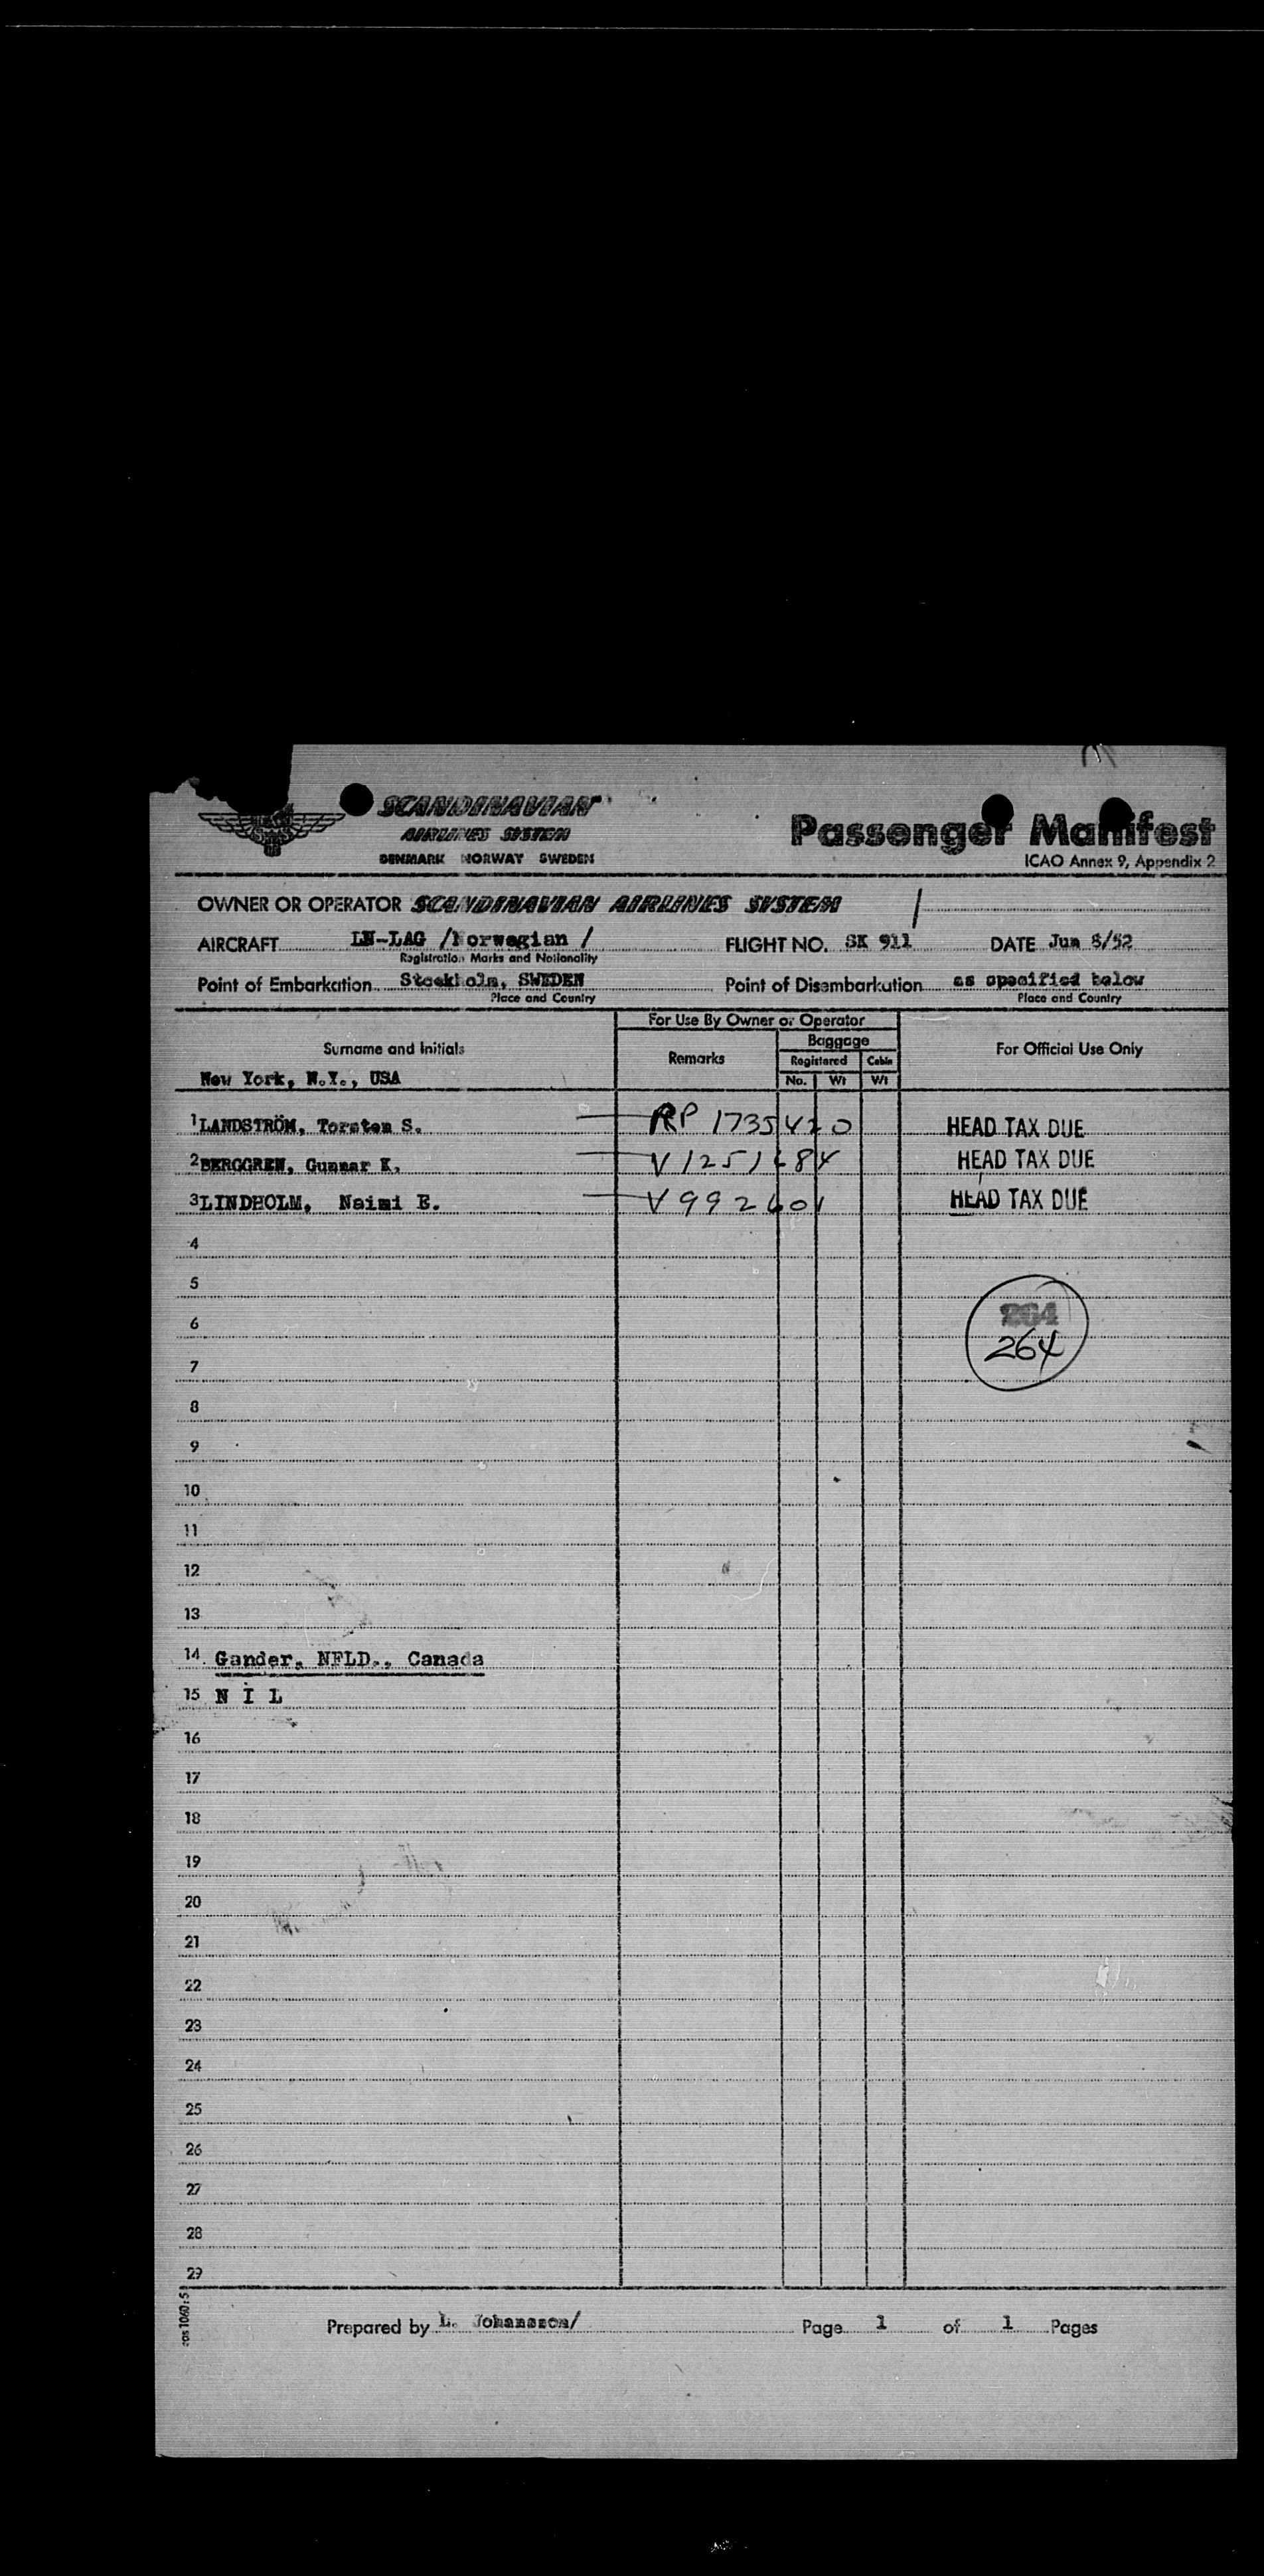 SCANDINAVIAN
AIRLINES SYSTEM
DENMARK NORWAY SWEDEN
Passenger Manifest
ICAO Annex 9, Appendix 2
OWNER OR OPERATOR SCANDINAVIAN AIRLINES SYSTEM
AIRCRAFT LN-LAG /Norwegian / FLIGHT NO. SK 911 DATE Jun 8/52
Registration Marks and Nationality
Point of Embarkation Stockholm, SWEDEN Point of Disembarkation as specified below
Place and Country Place and Country
For Use By Owner or Operator
Surname and Initials Remarks Baggage For Official Use Only
Registered Cabin
New York, N.Y., USA No. Wt Wt
1 LANDSTRÖM, Torsten S. RP 1735420 HEAD TAX DUE
2 BERGGREN, Gunnar K. V1251684 HEAD TAX DUE
3 LINDHOLM, Naimi E. V992601 HEAD TAX DUE
4
5
264
6
264
7
8
9
10
11
12
13
14 Gander, NFLD., Canada
15 N I L
16
17
18
19
20
21
22
23
24
25
26
27
28
29
Prepared by L. Johansson/ Page 1 of 1 Pages